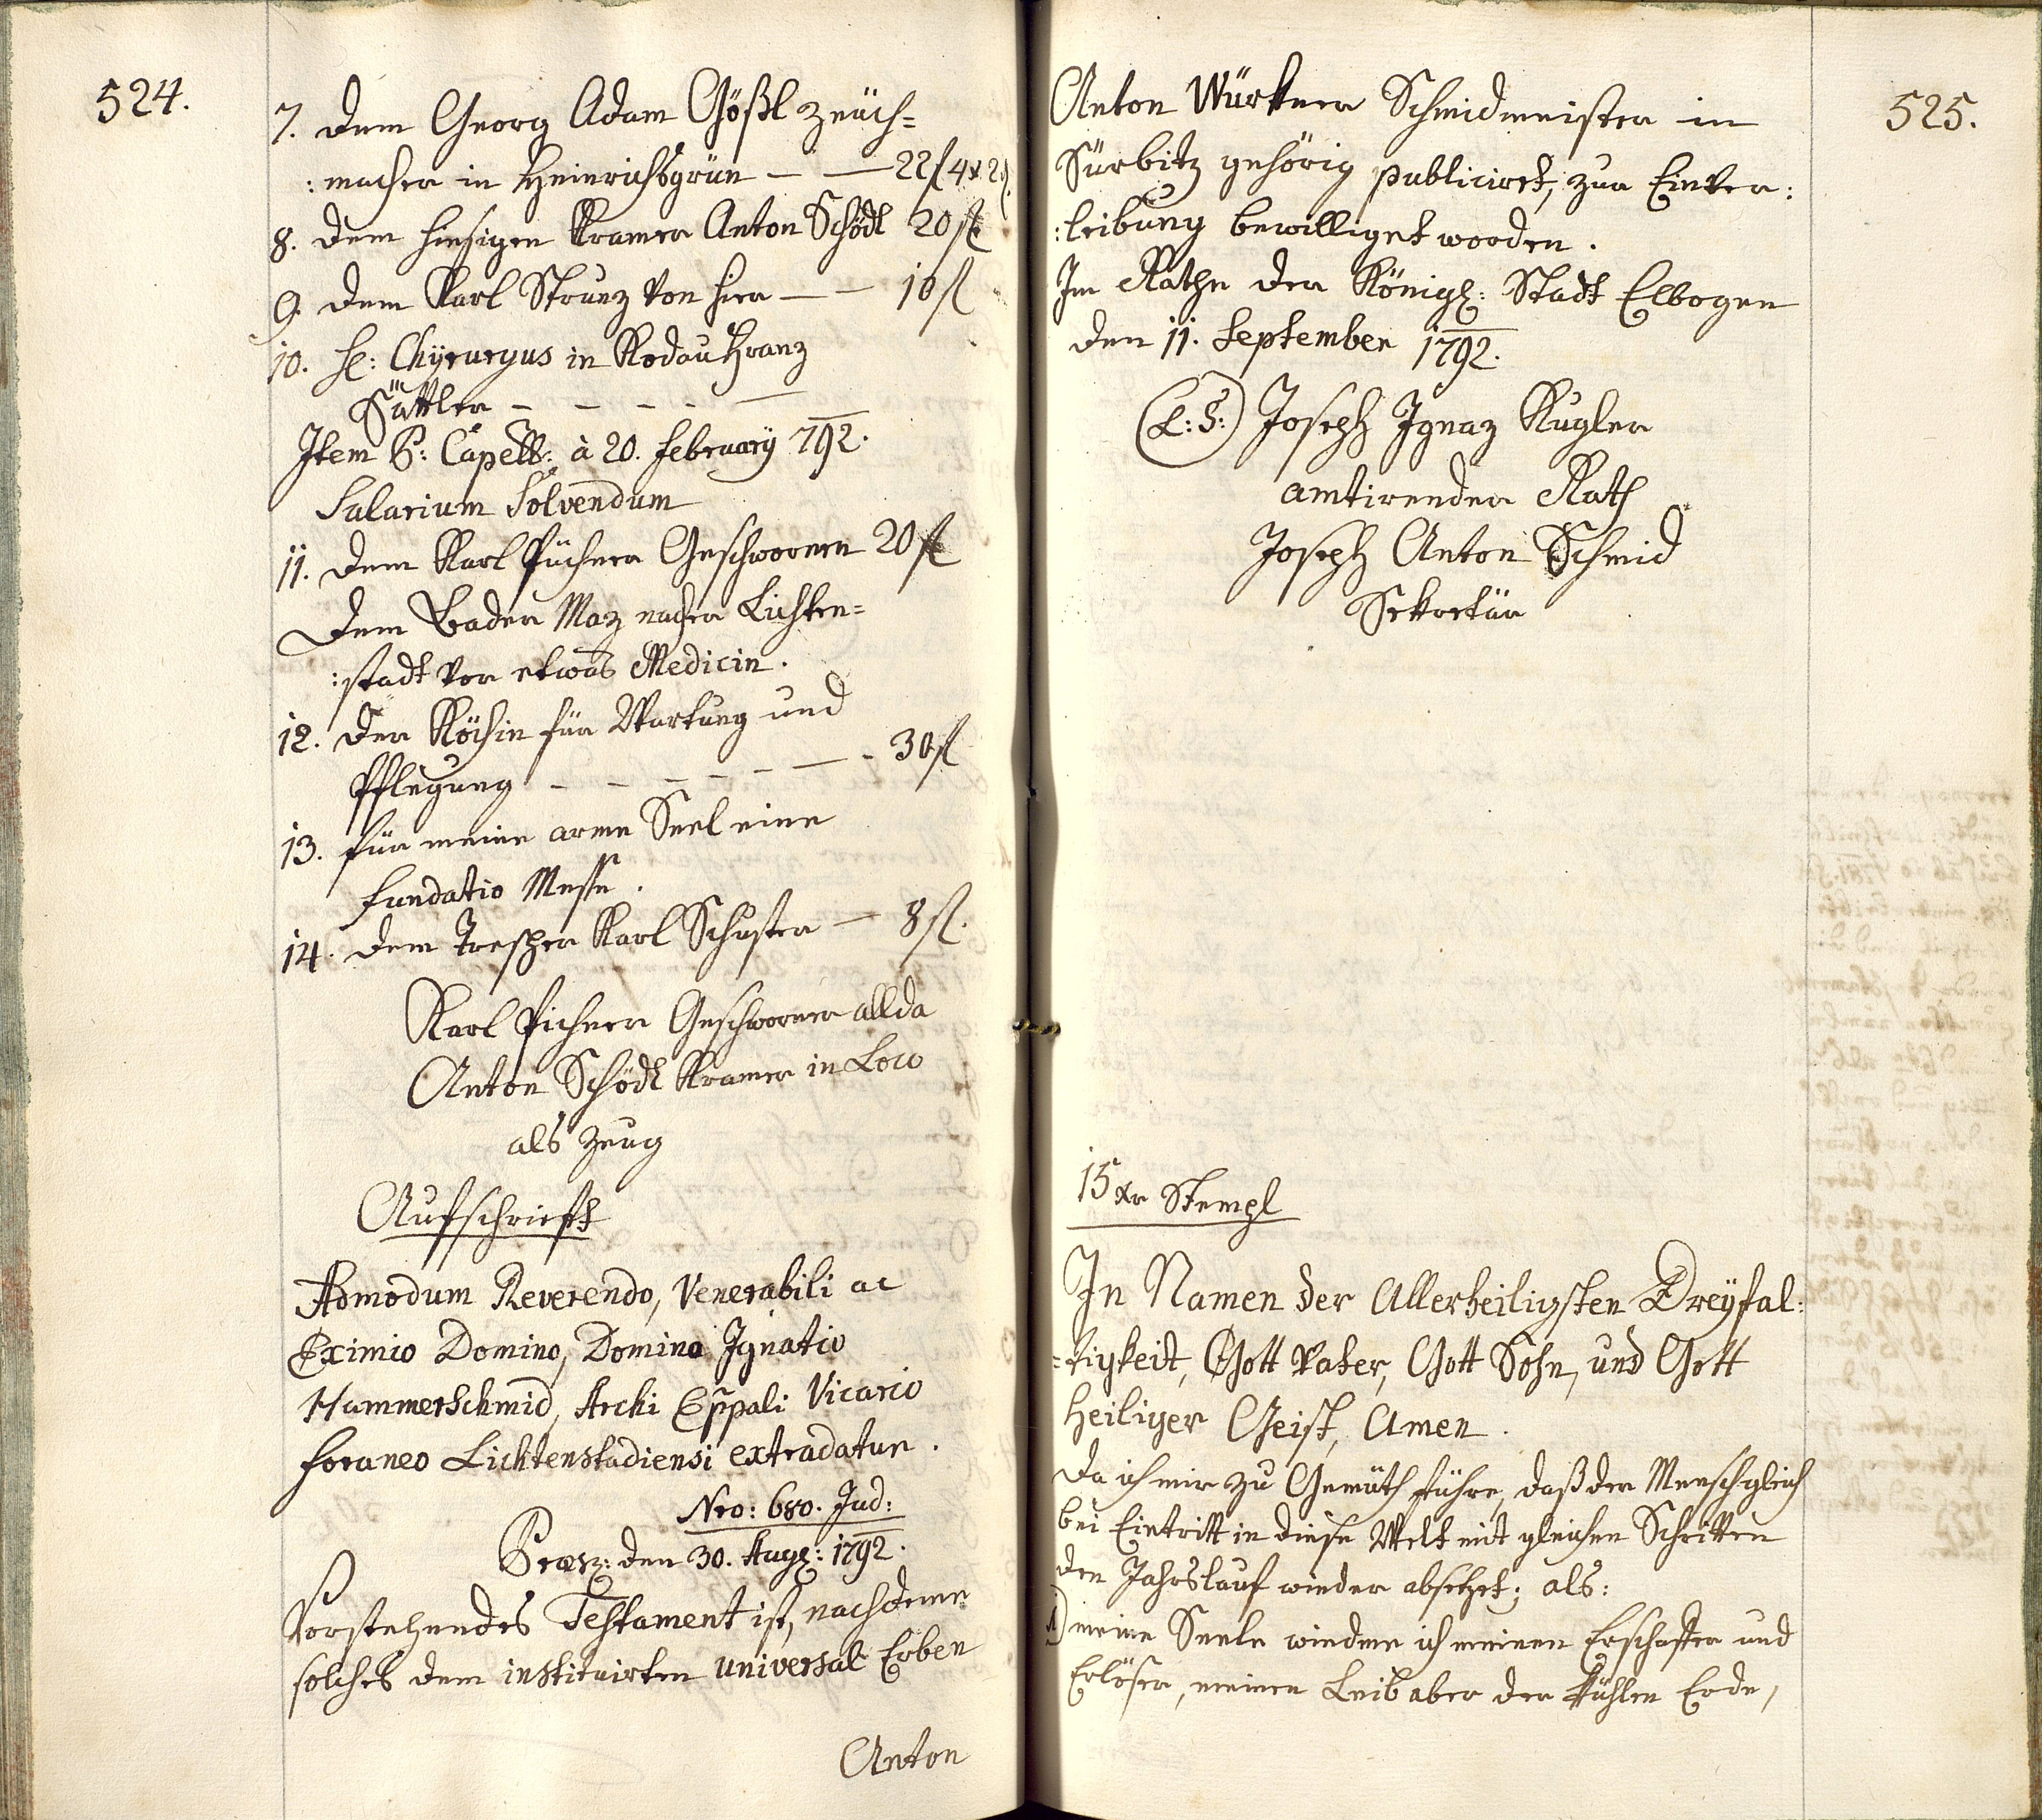 524.
7. dem Georg Adam Gößl Zeüch=
:macher in Heinrichsgrün — — 22f 4x 2
8. dem hiesigen Kramer Anton Schödl 20 fl
9. dem Karl Strunz von hier — — 10 fl
10. H: Chyrurgus in Rodau Franz
Sattler — — — — —
Item P: Capell: à 20. February 792.
Salarium Solvendum
11. dem Karl Püchner Geschwornen 20 fl
Dem Bader Maz nacher Lichten=
:stadt vor etwas Medicin.
12. der Köchin für Wartung und
Pflegung — — — — — — 30 fl
13. für meine arme Seel eine
Fundatio Messe.
14. dem Karl Schuster — 8 fl.
Karl Pichner Geschworner allda
Anton Schödl Kramer in Loco
als Zeug
Aufschrieft
Admodum Reverendo, Venerabili ac
Eximio Domino, Domino Ignatio
Hammerschmid, Archi Eppali Vicario
foraneo Lichtenstadiensi extradatur.
Nro: 680. Jud:
Præsz: den 30. Augg: 1792.
Vorstehendes Testament ist, nachdeme
solches dem instituirten universal Erben
Anton
525.
Anton Würkner Schmidmeister in
Sürbitz gehörig publiciret, zur Einver:
:leibung bewilliget worden.
Im Rathe der Königl: Stadt Elbogen
den 11. September 1792.
(L:S:) Joseph Ignaz Kugler
amtirender Rath
Joseph Anton Schmid
Sekretär
15 xr Stempl
In Namen der Allerheiligsten Dreyfal:
=tigkeit, Gott Vater, Gott Sohn, und Gott
Heiliger Geist, Amen.
Da ich mir zu Gemüth führe, daß der Mensch gleich
bei Eintritt in diese Welt mit gleichen Schritten
den Jahrslauf wieder absetzet; als:
1) meine Seele wiedme ich meinen Erschaffer und
Erlöser, meinen Leib aber der kühlen Erde,